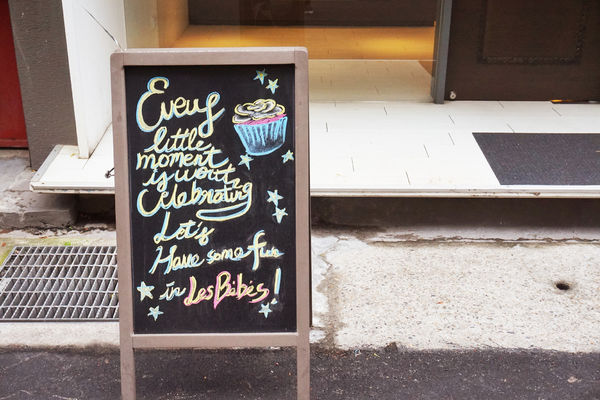 Every
little
moment
is worth
celebrating
Let's
Have some fun
in Les Bébés!